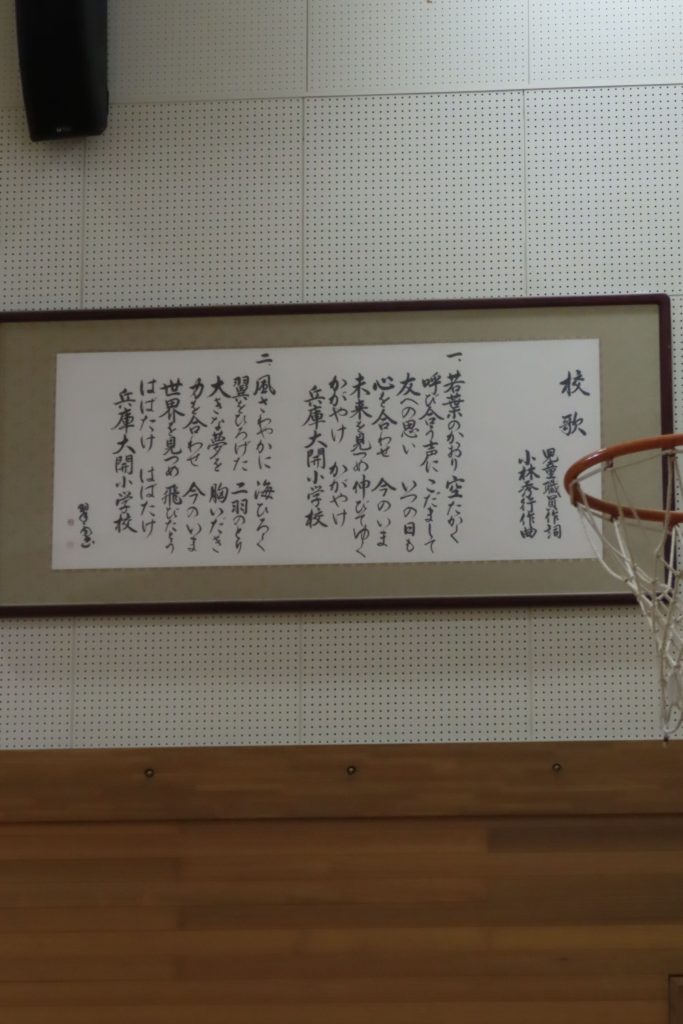 校歌
児童職員作詞
小林秀行作曲
一、若葉のかおり 空たかく
呼び合う声に こだまして
友への思い いつの日も
心を合わせ 今のいま
未来を見つめ伸びてゆく
かがやけ かがやけ
兵庫大開小学校
二、風さわやかに 海ひろく
翼をひろげた 二羽のとり
大きな夢を 胸いだき
力を合わせ 今のいま
世界を見つめ 飛びたとう
はばたけ はばたけ
兵庫大開小学校